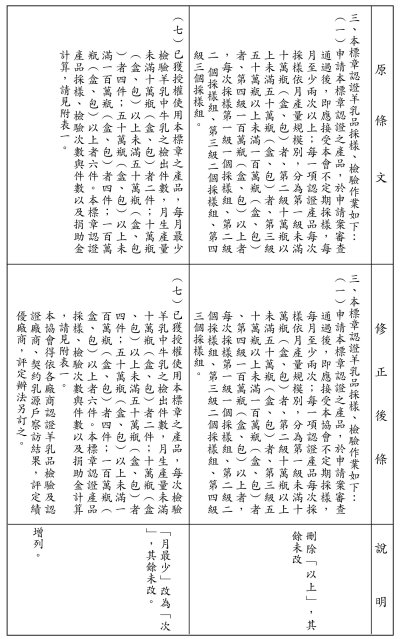 原條文
三、本標章認證羊乳品採樣、檢驗作業如下：
（一）申請本標章認證之產品，於申請案審查
通過後，即應接受本會不定期採樣，每
月至少兩次以上；每一項認證產品每次
採樣依月產量規模別，分為第一級未滿
十萬瓶（盒、包）者、第二級十萬瓶以
上未滿五十萬瓶（盒、包）者、第三級
五十萬瓶以上未滿一百萬瓶（盒、包）
者、第四級一百萬瓶（盒、包）以上者
，每次採樣第一級一個採樣組、第二級
二個採樣組、第三級二個採樣組、第四
級三個採樣組。
（七）已獲授權使用本標章之產品，每月最少
檢驗羊乳中牛乳之檢出件數，月生產量
未滿十萬瓶（盒、包）者二件；十萬瓶
（盒、包）以上未滿五十萬瓶（盒、包
）者四件；五十萬瓶（盒、包）以上未
滿一百萬瓶（盒、包）者四件；一百萬
瓶（盒、包）以上者六件。本標章認證
產品採樣、檢驗次數與件數以及捐助金
計算，請見附表一。
修正後條
三、本標章認證羊乳品採樣、檢驗作業如下：
（一）申請本標章認證之產品，於申請案審查
通過後，即應接受本協會不定期採樣，
每月至少兩次；每一項認證產品每次採
樣依月產量規模別，分為第一級未滿十
萬瓶（盒、包）者、第二級十萬瓶以上
未滿五十萬瓶（盒、包）者、第三級五
十萬瓶以上未滿一百萬瓶（盒、包）者
、第四級一百萬瓶（盒、包）以上者，
每次採樣第一級一個採樣組、第二級二
個採樣組、第三級二個採樣組、第四級
三個採樣組。
（七）已獲授權使用本標章之產品，每次檢驗
羊乳中牛乳之檢出件數，月生產量未滿
十萬瓶（盒、包）者二件；十萬瓶（盒
、包）以上未滿五十萬瓶（盒、包）者
四件；五十萬瓶（盒、包）以上未滿一
百萬瓶（盒、包）者四件；一百萬瓶（
盒、包）以上者六件。本標章認證產品
採樣、檢驗次數與件數以及捐助金計算
，請見附表一。
本協會得依各廠商認證羊乳品檢驗及認
證廠商、契約乳源戶察訪結果，評定績
優廠商，評定辦法另訂之。
說明
刪除「以上」，其
餘未改
「月最少」改為「次
」，其餘未改。
增列。